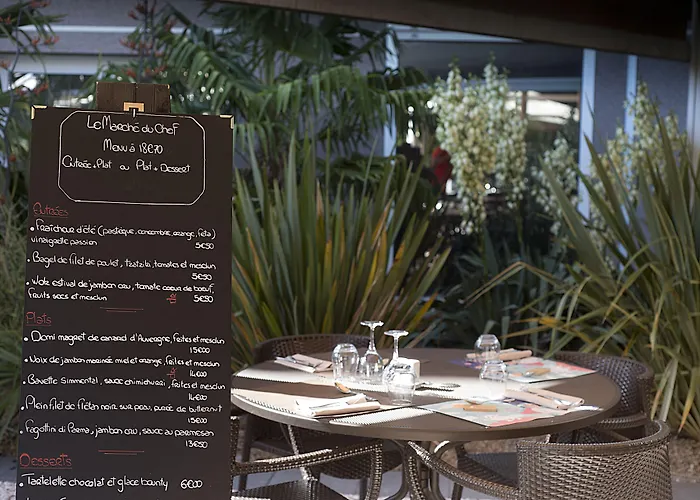 Le Marché du Chef
Menu à 18€70
Entrée + Plat ou Plat + Dessert
Entrées
• Fraîcheur d'été (pastèque, concombre, orange, feta)
vinaigrette passion 5€90
• Bagel de filet de poulet, tzatziki, tomates et mesclun
5€90
• Wok estival de jambon cru, tomate coeur de boeuf,
fruits secs et mesclun 5€90
Plats
• Demi magret de canard d'Auvergne, frites et mesclun
15€00
• Noix de jambon marinée miel et orange, frites et mesclun
14€00
• Bavette Simmental, sauce chimichurri, frites et mesclun
14€00
• Plein filet de flétan noir sur peau, purée de butternut
15€00
• Fagottini di Parma, jambon cru, sauce au parmesan
13€50
Desserts
• Tartelette chocolat et glace bounty 6€00